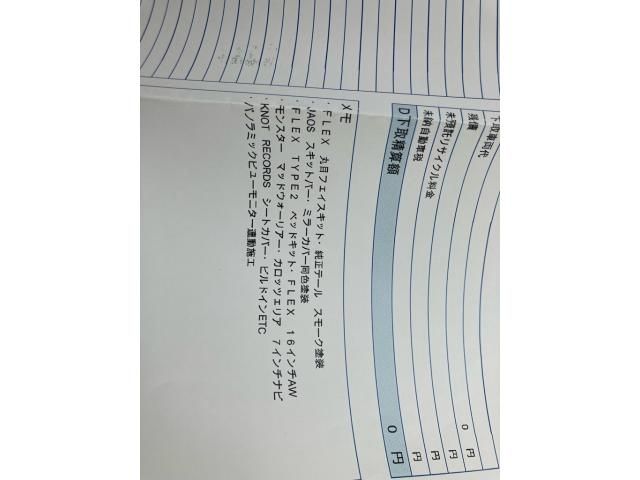 下取車両代
残債 0 円
未預託リサイクル料金 円
未納自動車税 円
円
D下取精算額 0 円
メモ
・FLEX 丸目フェイスキット・純正テール スモーク塗装
・JAOS スキットバー・ミラーカバー同色塗装
・FLEX TYPE2 ベッドキット・FLEX 16インチAW
・モンスター マッドウォーリアー・カロッツェリア 7インチナビ
・KNOT RECORDS シートカバー・ビルドインETC
・パノラミックビューモニター連動施工